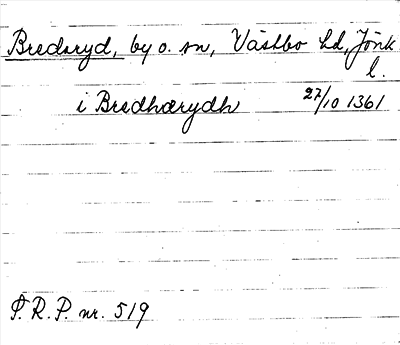 Bredaryd, by o. sn, Västbo hd, Jönk
l.
i Bredhærydh 27/10 1361
P.R.P. nr. 519